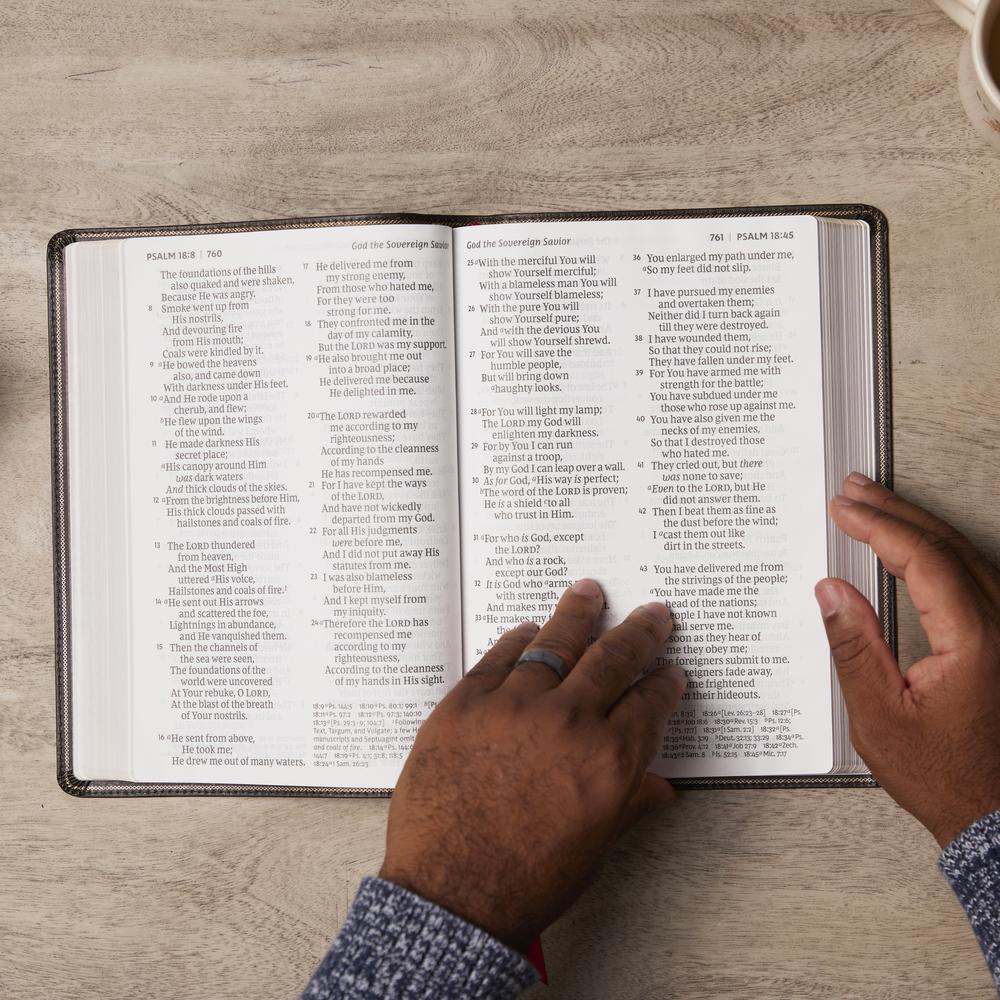 PSALM 18:8 | 760
God the Sovereign Savior
The foundations of the hills
also quaked and were shaken,
Because He was angry.
8 Smoke went up from
His nostrils,
And devouring fire
from His mouth;
Coals were kindled by it.
9 aHe bowed the heavens
also, and came down
With darkness under His feet.
10 aAnd He rode upon a
cherub, and flew;
bHe flew upon the wings
of the wind.
11 He made darkness His
secret place;
aHis canopy around Him
was dark waters
And thick clouds of the skies.
12 aFrom the brightness before Him,
His thick clouds passed with
hailstones and coals of fire.
13 The LORD thundered
from heaven,
And the Most High
uttered aHis voice,
Hailstones and coals of fire.
14 aHe sent out His arrows
and scattered the foe,
Lightnings in abundance,
and He vanquished them.
15 Then the channels of
the sea were seen,
The foundations of the
world were uncovered
At Your rebuke, O LORD,
At the blast of the breath
of Your nostrils.
16 aHe sent from above,
He took me;
He drew me out of many waters.
17 He delivered me from
my strong enemy,
From those who hated me,
For they were too
strong for me.
18 They confronted me in the
day of my calamity,
But the LORD was my support.
19 aHe also brought me out
into a broad place;
He delivered me because
He delighted in me.
20 aThe LORD rewarded
me according to my
righteousness;
According to the cleanness
of my hands
He has recompensed me.
21 For I have kept the ways
of the LORD,
And have not wickedly
departed from my God.
22 For all His judgments
were before me,
And I did not put away His
statutes from me.
23 I was also blameless
before Him,
And I kept myself from
my iniquity.
24 aTherefore the LORD has
recompensed me
according to my
righteousness,
According to the cleanness
of my hands in His sight.
18:9 a Ps. 144:5 18:10 a Ps. 80:1; 99:1
18:11 a Ps. 97:2 18:12 a Ps. 97:3; 140:10
18:13 a [Ps. 29:3–9; 104:7] 1 Following
Text, Targum, and Vulgate; a few
manuscripts and Septuagint omit
and coals of fire. 18:14 a Ps. 144:6
144:7 18:19 a Ps. 4:1; 31:8; 118:5
18:24 a 1 Sam. 26:23
God the Sovereign Savior
761 | PSALM 18:45
25 aWith the merciful You will
show Yourself merciful;
With a blameless man You will
show Yourself blameless;
26 With the pure You will
show Yourself pure;
And awith the devious You
will show Yourself shrewd.
27 For You will save the
humble people,
But will bring down
ahaughty looks.
28 aFor You will light my lamp;
The LORD my God will
enlighten my darkness.
29 For by You I can run
against a troop,
By my God I can leap over a wall.
30 As for God, aHis way is perfect;
bThe word of the LORD is proven;
He is a shield cto all
who trust in Him.
31 aFor who is God, except
the LORD?
And who is a rock,
except our God?
32 It is God who aarms
with strength,
And makes my
33 aHe makes my
34 a
36 You enlarged my path under me,
aSo my feet did not slip.
37 I have pursued my enemies
and overtaken them;
Neither did I turn back again
till they were destroyed.
38 I have wounded them,
So that they could not rise;
They have fallen under my feet.
39 For You have armed me with
strength for the battle;
You have subdued under me
those who rose up against me.
40 You have also given me the
necks of my enemies,
So that I destroyed those
who hated me.
41 They cried out, but there
was none to save;
aEven to the LORD, but He
did not answer them.
42 Then I beat them as fine as
the dust before the wind;
I acast them out like
dirt in the streets.
43 You have delivered me from
the strivings of the people;
aYou have made me the
head of the nations;
people I have not known
shall serve me.
soon as they hear of
me they obey me;
The foreigners submit to me.
foreigners fade away,
frightened
from their hideouts.
18:26 a [Lev. 26:23–28] 18:27 a [Ps.
Job 18:6 18:30 a Rev. 15:3 b Ps. 12:6;
[Ps. 17:7] 18:31 a [1 Sam. 2:2] 18:32 a [Ps.
Hab. 3:19 b Deut. 32:13; 33:29 18:34 a Ps.
18:36 a Prov. 4:12 18:41 a Job 27:9 18:42 a Zech.
18:43 a 2 Sam. 8 b Is. 52:15 18:45 a Mic. 7:17